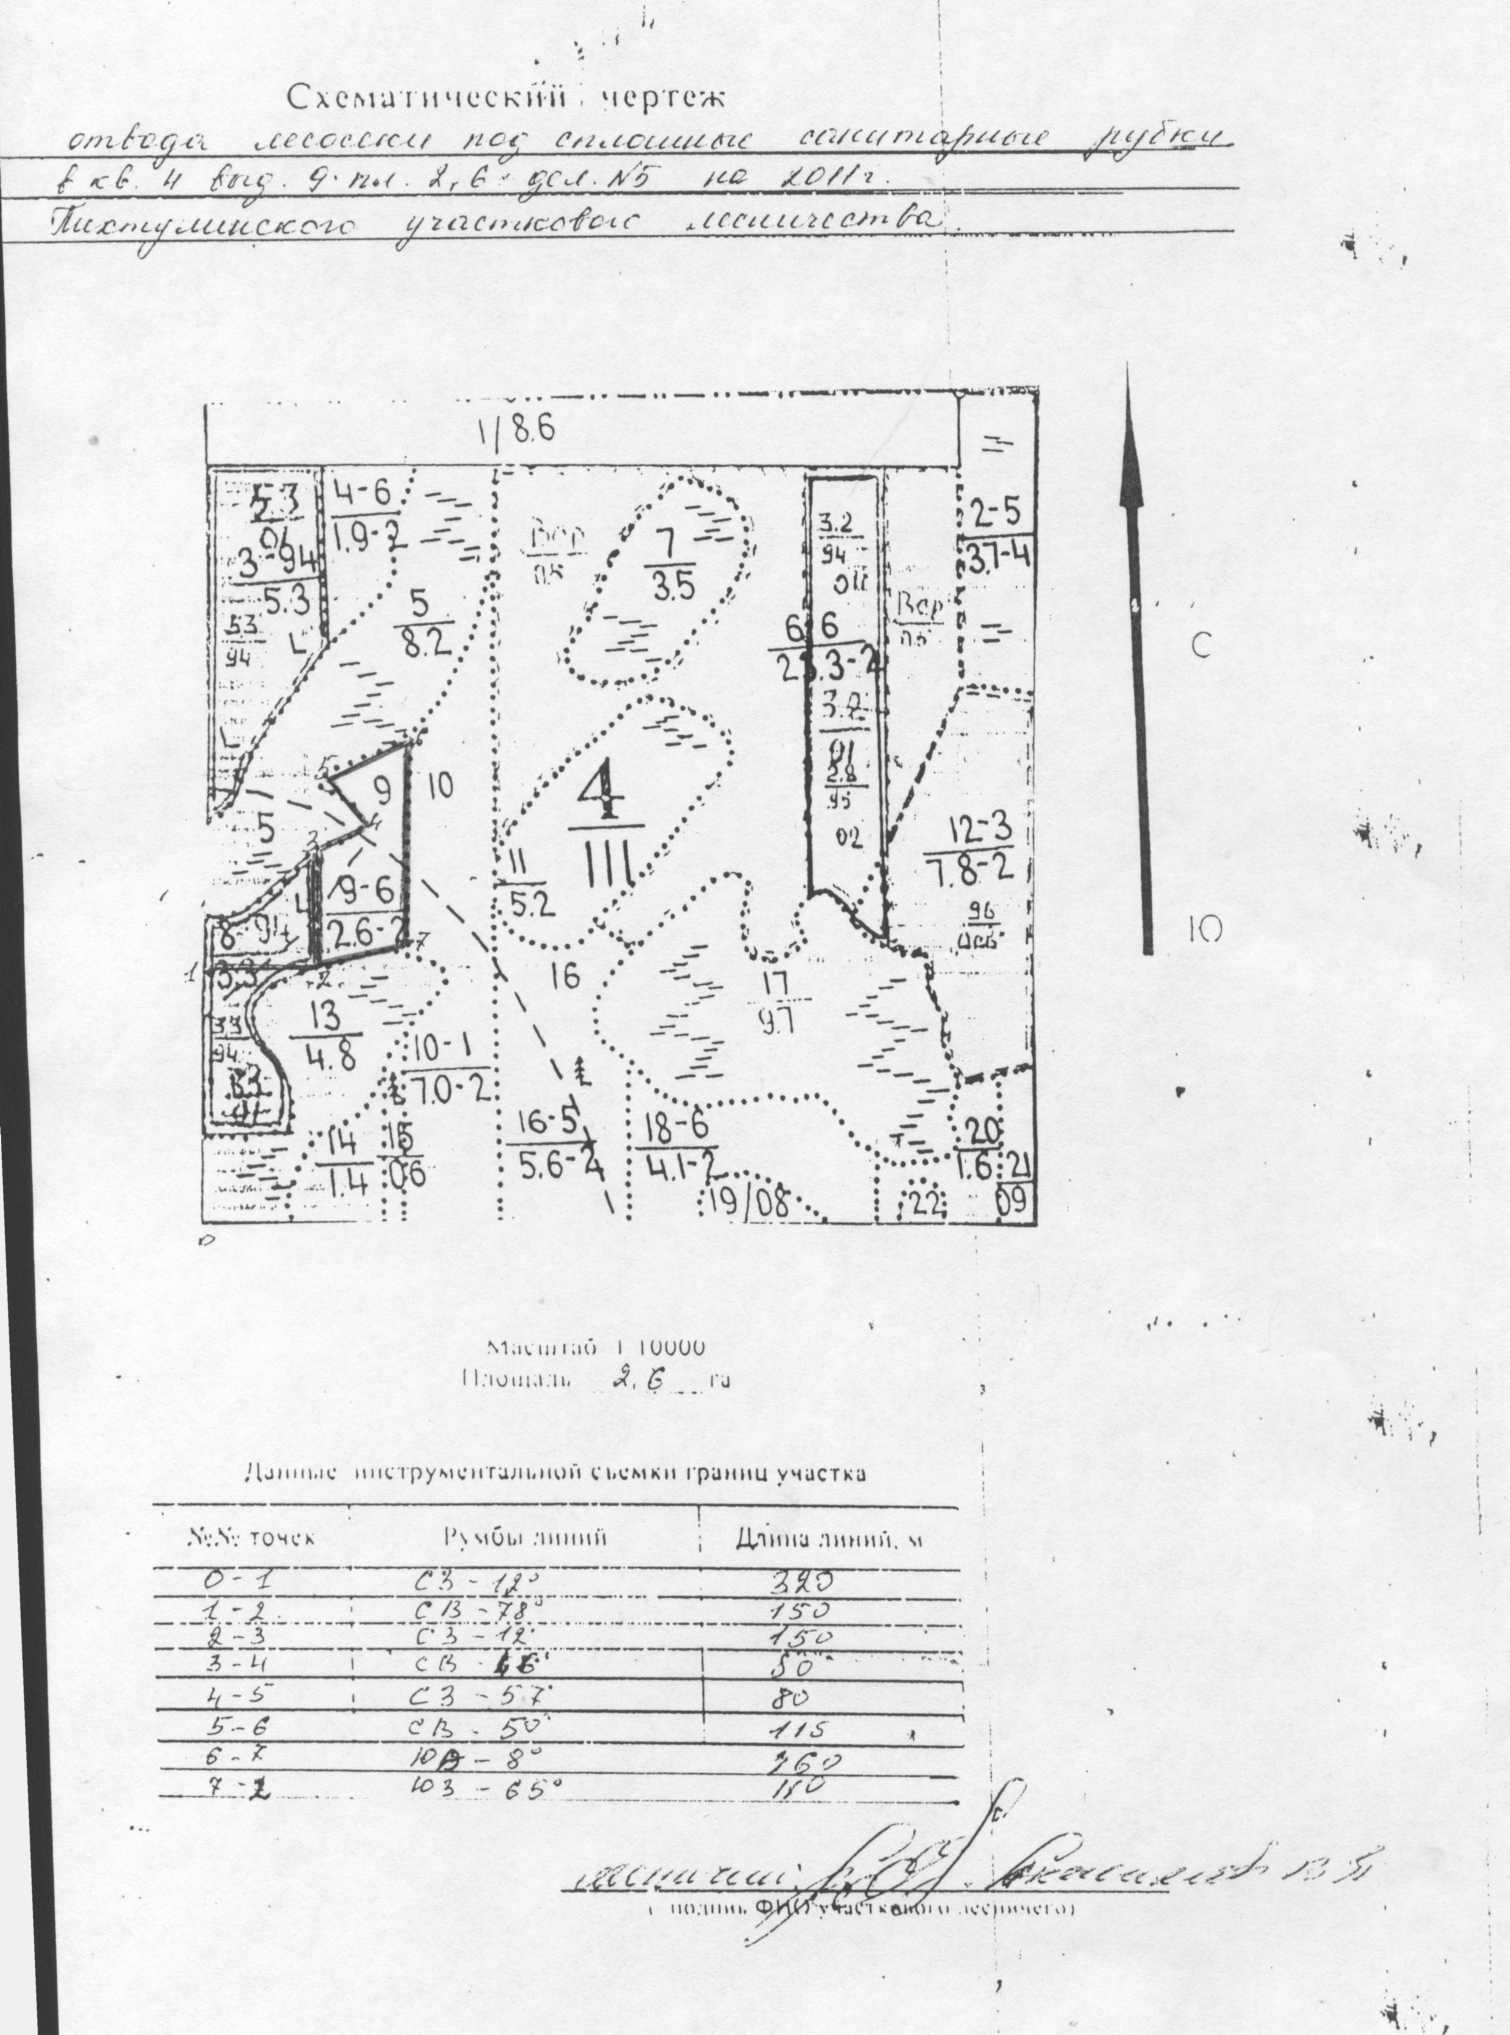 Схематический чертеж
отвода лесосеки под сплошные санитарные рубки
в кв. 4 выд. 9 пл. 2,6 дел. №5 на 2011г.
Пихтулинского участкового лесничества.
1/8.6
5.3
01
4-6
1.9-2
3-94
5.3
53
94
5
8.2
Вер
7
3.5
3.2
94
ОП
2-5
3.7-4
Вер
С
6 6
23.3-2
3.2
01
2.8
95
02
5
6
9
10
4
III
5
3
4
12-3
7.8-2
96
11
5.2
9-6
2.6-2
8-94
3.3
1
2
7
Ю
16
17
9.7
33
94
13
4.8
10-1
7.0-2
14
1.4
15
06
16-5
5.6-2
18-6
4.1-2
19/08
20
1.6
21
09
22
0
Масштаб 1 10000
Площадь 2,6 га
Данные инструментальной съемки границ участка
№№ точек Румбы линий Длина линий, м
0-1 СЗ-12° 320
1-2 СВ-78° 150
2-3 СЗ-12° 150
3-4 СВ 50
4-5 СЗ-57° 80
5-6 СВ-50° 115
6-7 -8° 260
7-2 ЮЗ-65°
лесничий
( подпись ФИО участкового лесничего)